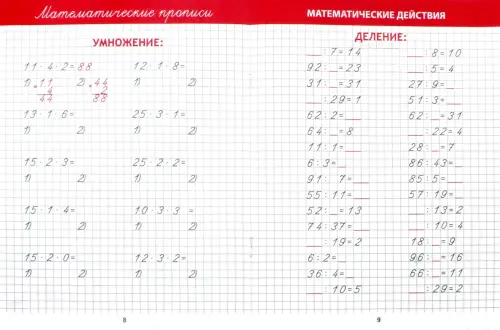 Математические прописи
УМНОЖЕНИЕ:
11 · 4 · 2 = 88 12 · 1 · 8 =
1) 11 2) 44
4 2
44 88
1) 2)
13 · 1 · 6 = 25 · 3 · 1 =
1) 2) 1) 2)
15 · 2 · 3 = 25 · 2 · 2 =
1) 2) 1) 2)
15 · 1 · 4 = 10 · 3 · 3 =
1) 2) 1) 2)
15 · 2 · 0 = 12 · 3 · 2 =
1) 2) 1) 2)
8
МАТЕМАТИЧЕСКИЕ ДЕЙСТВИЯ
ДЕЛЕНИЕ:
__ : 7 = 14 __ : 8 = 10
92 : __ = 23 __ : 5 = 4
31 : __ = 31 27 : 9 = __
__ : 29 = 1 51 : 3 = __
62 : 2 = __ 62 : __ = 31
64 : __ = 8 __ : 22 = 4
11 : 1 = __ 28 : __ = 7
6 : 3 = __ 86 : 43 = __
91 : 7 = __ 85 : 5 = __
55 : 11 = __ 57 : 19 = __
52 : __ = 13 __ : 13 = 2
74 : 37 = __ __ : 10 = 4
__ : 19 = 2 18 : __ = 9
6 : 2 = __ 96 : __ = 16
36 : 4 = __ 66 : __ = 11
__ : 10 = 5 __ : 29 = 2
9